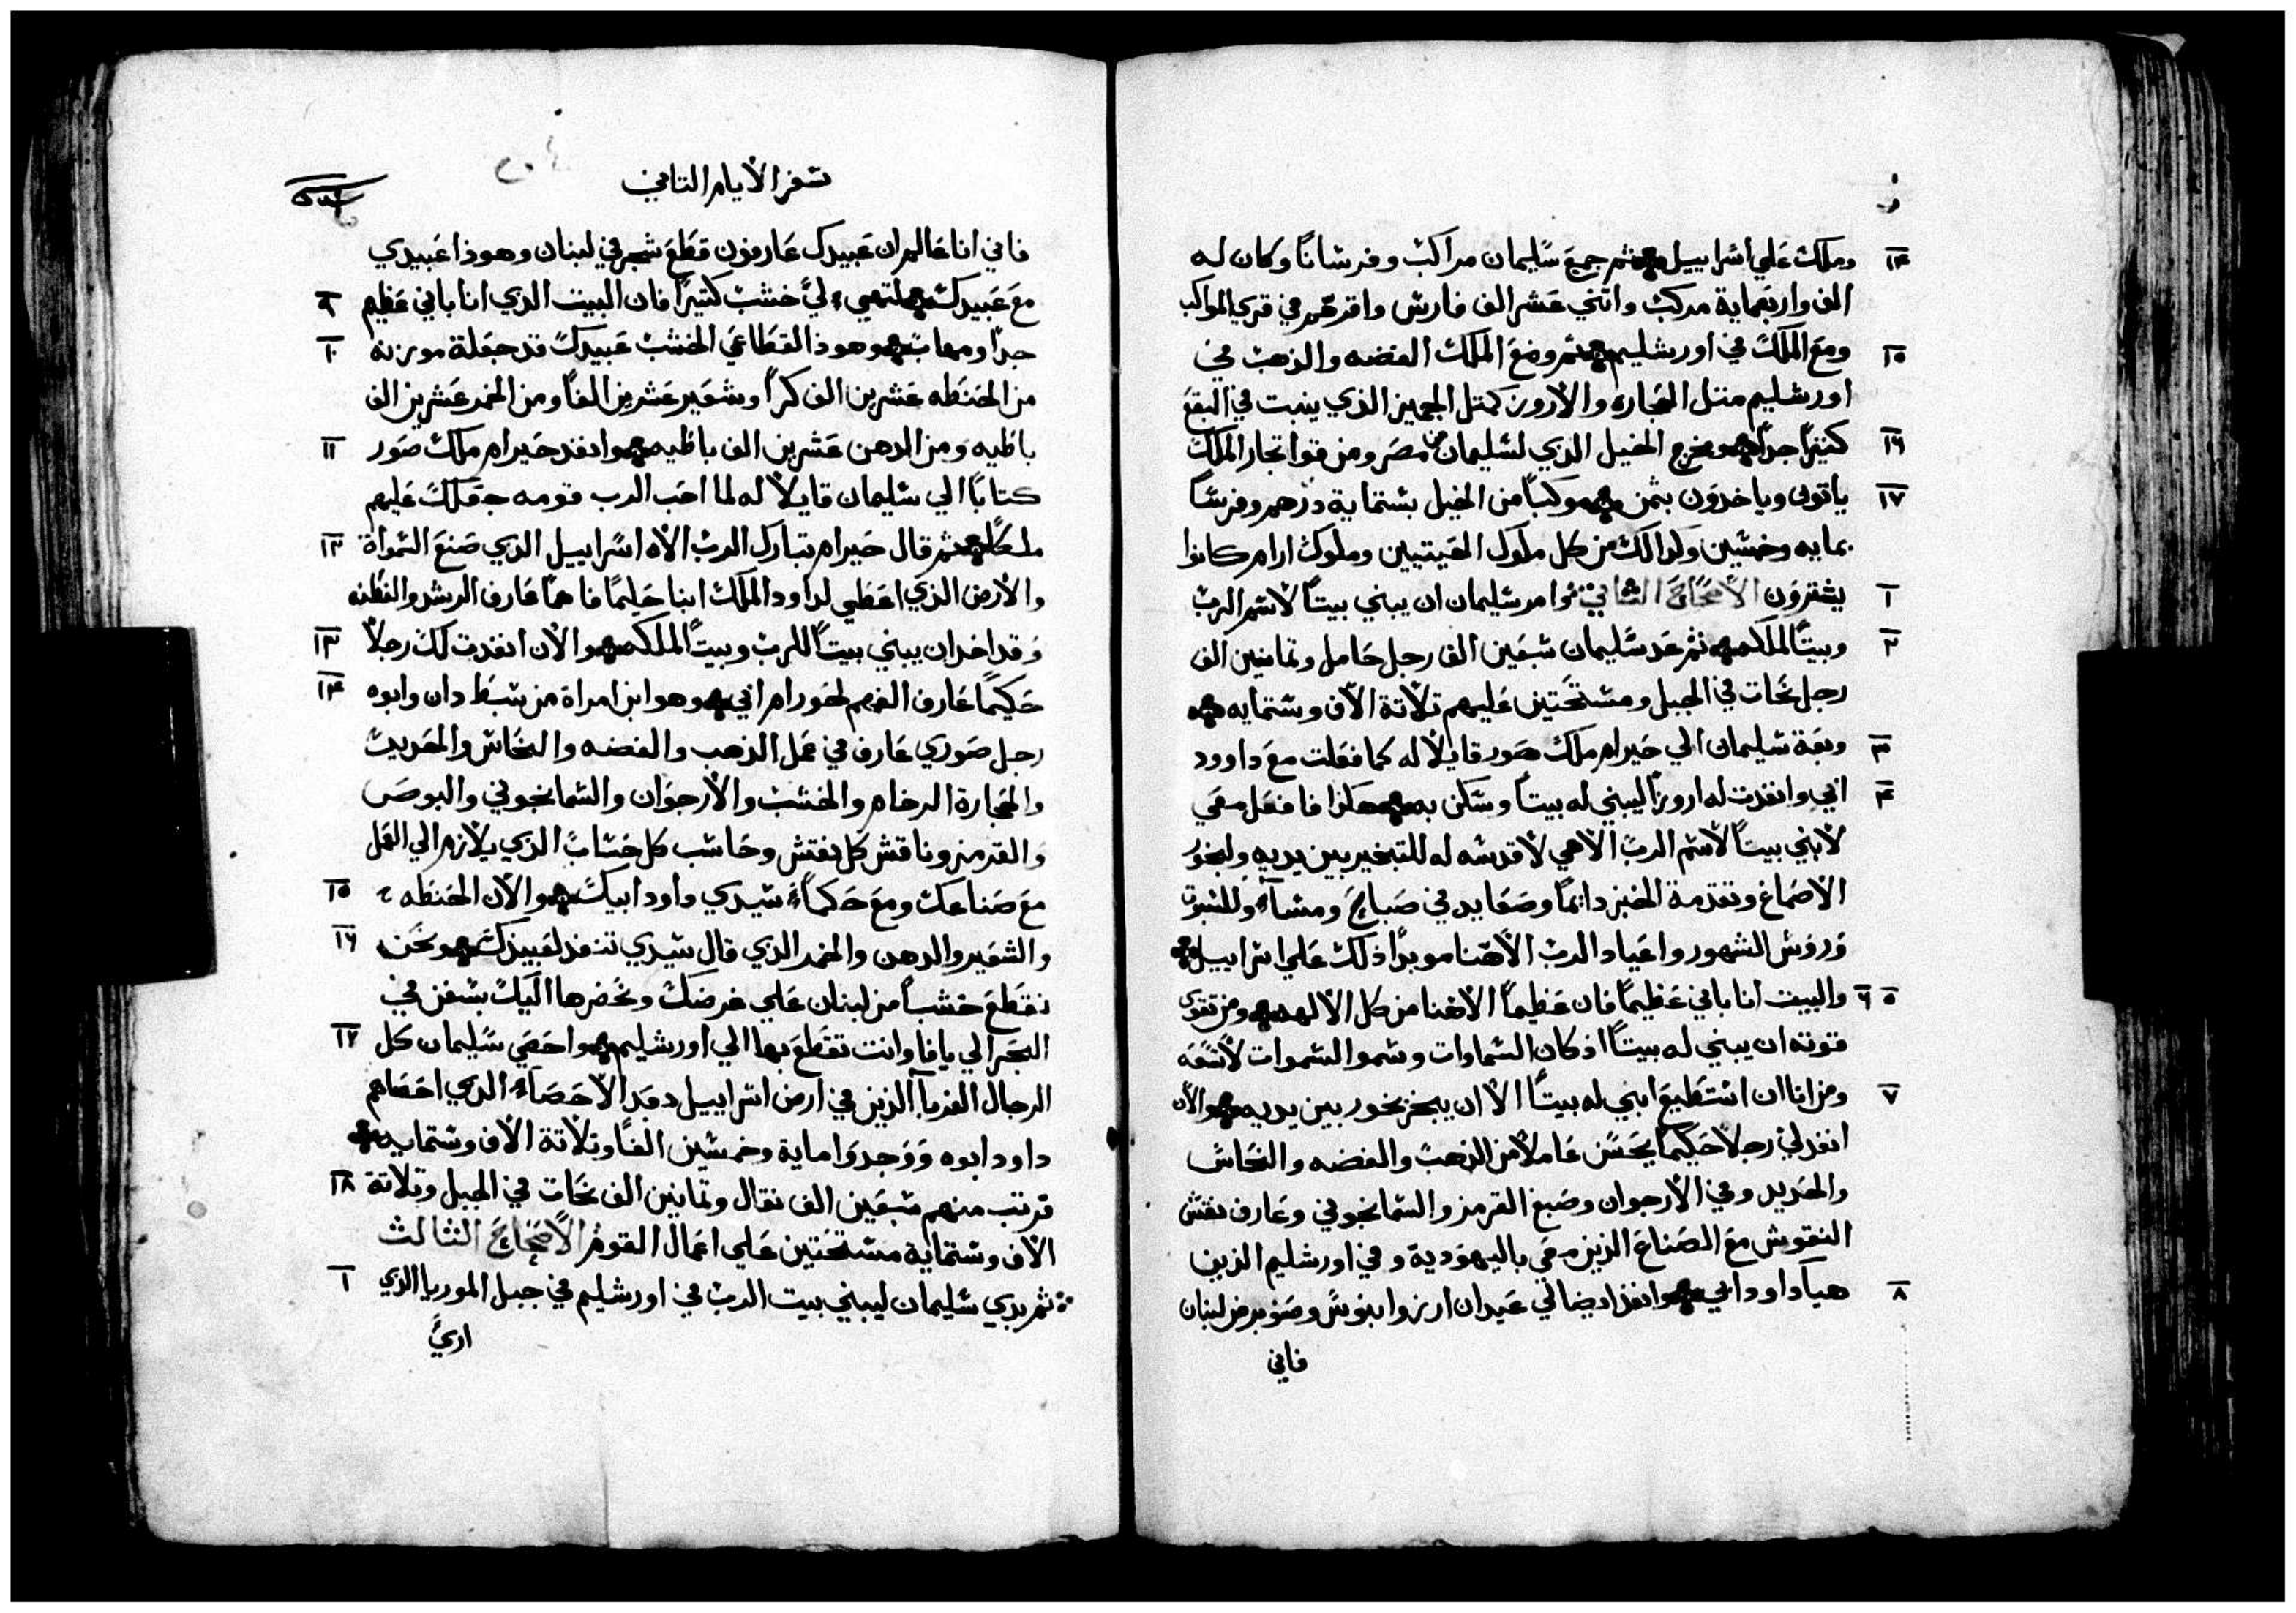 وملك علي اسراييل ثم جمع سليمان مراكب وفرسانًا وكان له ١٤
الف واربعماية مركب واتني عشر الف فارس واقرهم في قري المراكب
ومع الملك في اورشليم ثم وضع الملك الفضه والذهب في ١٥
اورشليم متل الحجاره والاروز كمتل الجميز الذي ينبت في البقع
كتيرًا جدًا ومخرج الخيل الذي لسليمان من مصر ومن قوا تجار الملك ١٦
ياتون وياخدون بثمن موكبًا من الخيل بستماية درهم وفرسًا ١٧
بمايه وخمسين وكدالك من كل ملوك الحيتيين وملوك ارام كانوا
يشترون الاصحاح الثاني وامر سليمان ان يبني بيتًا لاسم الرب ١
وبيتًا لملكه ثم عد سليمان سبعين الف رجل حامل وتمانين الف ٢
رجل نحات في الجبل ومستحتين عليهم تلاتة الاف وستمايه
وبعة سليمان الي حيرام ملك صور قايلًا له كما فعلت مع داوود ٣
ابي وانفدت له اروزًا ليبني له بيتًا وسكن به هكذا فافعل معي ٤
لابني بيتًا لاسم الرب الاهي لاقدسه له للتبخير بين يديه ولبخور
الاصماغ وتقدمة الخبز دايمًا وصعايد في صباح ومسآء وللسبوت
وروس الشهور واعياد الرب الاهنا موبدًا ذلك علي اسراييل
والبيت انا باني عظيمًا فان عظيمًا الاهنا من كل الالهه ومن تقوي ٥ ٦
قوته ان يبني له بيتًا اذ كان السماوات وسموا السموات لا تسعه
ومن انا ان استطيع ابني له بيتًا الا ان يبخر بخور بين يديه والان ٧
انفد لي رجلًا حكيمًا يحسن عاملًا من الذهب والفضه والنحاس
والحديد وفي الارجوان وصبغ القرمز والسمانجوني وعارف نقش
النقوش مع الصناع الذين معي باليهودية وفي اورشليم الذين
هيا داود ابي وانفد ايضا لي عيدان ارز وابنوس وصنوبر من لبنان ٨
فاني
سفر الايام التاني
فاني انا عالم ان عبيدك عارفون قطع شجر في لبنان وهوذا عبيدي
مع عبيدك لتهيء لي خشب كتيرًا فان البيت الدي انا باني عظيم ٩
جدًا ومهاب وهوذا القطاعي الخشب عبيدك قد جعلة مونه ١٠
من الحنطه عشرين الف كرًا وشعير عشرين الفًا ومن الخمر عشرين الف
باطيه ومن الدهن عشرين الف باطيه وانفد حيرام ملك صور ١١
كتابًا الي سليمان قايلًا له لما احب الرب قومه جعلك عليهم
ملكًا ثم قال حيرام تبارك الرب الاه اسراييل الدي صنع السمواة ١٢
والارض الذي اعطي لداود الملك ابنا حليمًا فاهمًا عارف الرشد والفطنه
وقد اخد ان يبني بيتًا للرب وبيتًا لملكه والان انفدت لك رجلًا ١٣
حكيمًا عارف الفهم لحورام ابي وهو ابن امراة من سبط دان وابوه ١٤
رجل صوري عارف في عمل الذهب والفضه والنحاس والحديد
والحجارة الرخام والخشب والارجوان والسمانجوني والبوص
والقرمز وناقش كل نقش وحاسب كل حساب الذي يلازم الي العمل
مع صناعك ومع حكماء سيدي داود ابيك والان الحنطه ١٥
والشعير والدهن والخمر الذي قال سيدي تنفد لعبيدك ونحن ١٦
نقطع خشبًا من لبنان علي غرضك ونحضرها اليك بسفن في
البحر الي يافا وانت تقطع بها الي اورشليم واحصي سليمان كل ١٧
الرجال الغربآ الذين في ارض اسراييل بعد الاحصاء الدي احصاهم
داود ابوه ووجدوا ماية وخمسين الفًا وتلاتة الاف وستمايه
فرتب منهم سبعين الف نقال وتمانين الف نحات في الجبل وتلاتة ١٨
الاف وستماية مستحتين علي اعمال القوم الاصحاح الثالث
ثم بدي سليمان ليبني بيت الرب في اورشليم في جبل الموريا الذي ١
اريَ